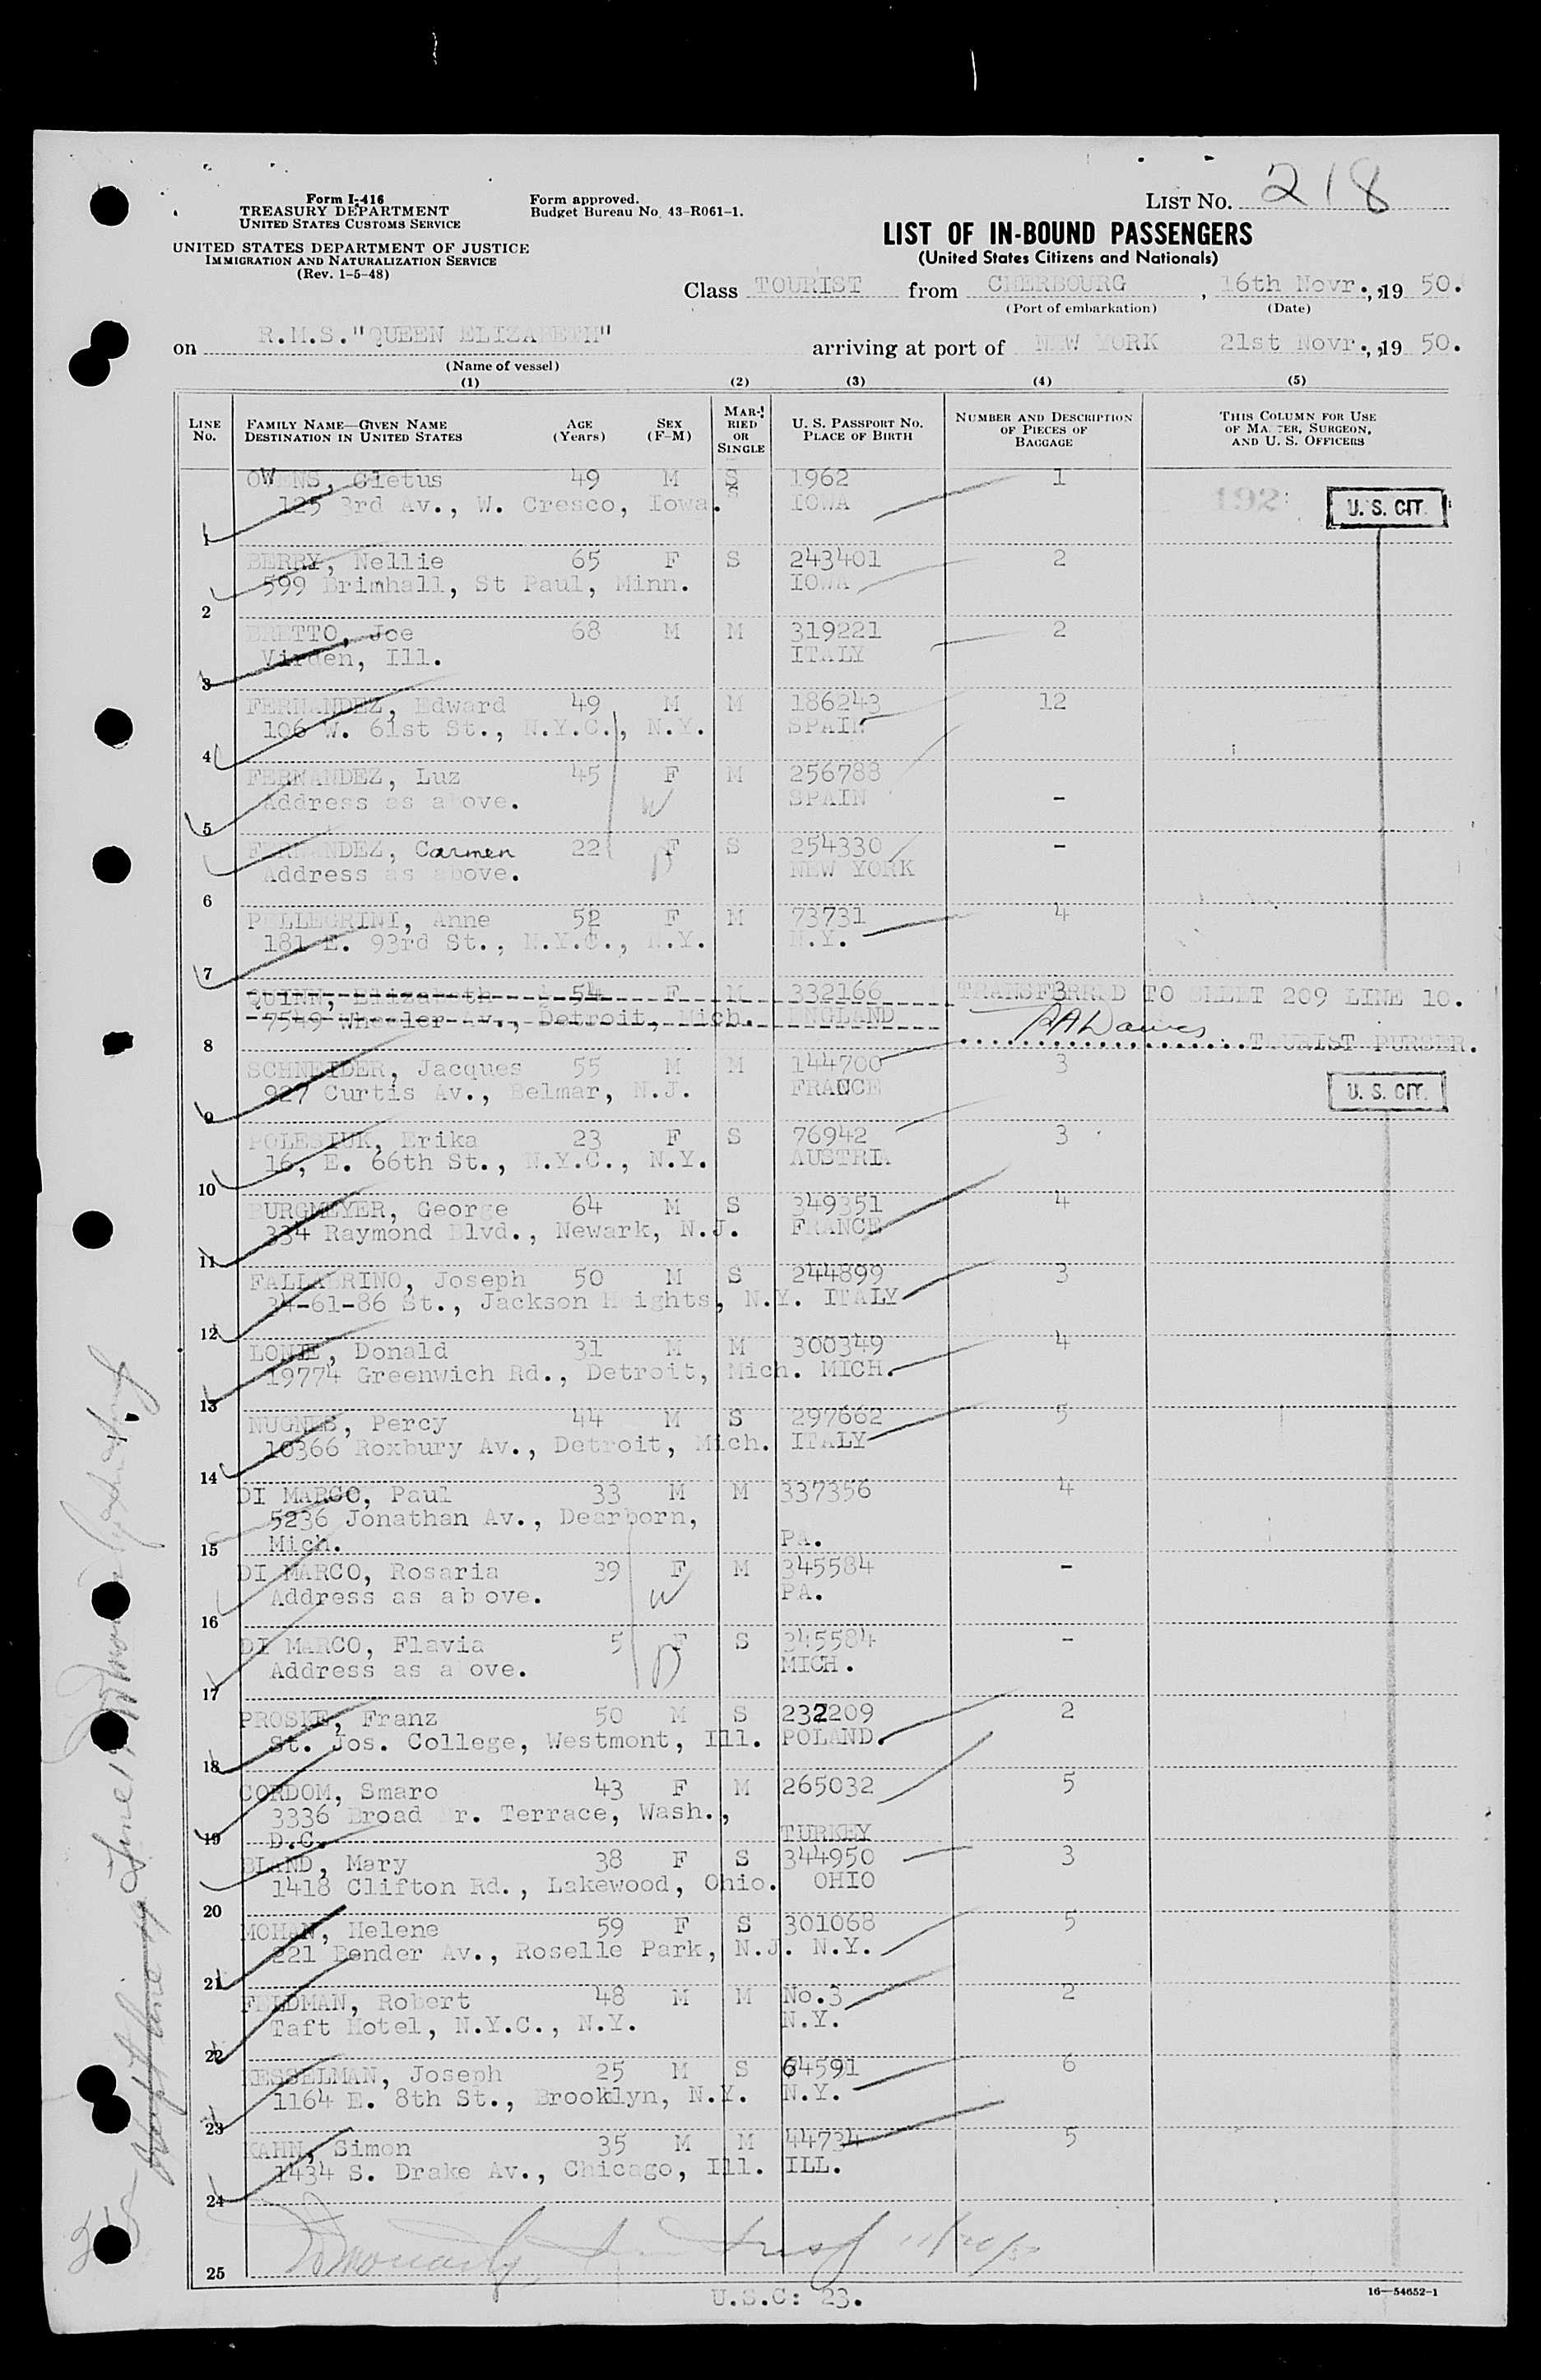 Form I-416
TREASURY DEPARTMENT
UNITED STATES CUSTOMS SERVICE
UNITED STATES DEPARTMENT OF JUSTICE
IMMIGRATION AND NATURALIZATION SERVICE
(Rev. 1-5-48)
Form approved.
Budget Bureau No. 43-R061-1.
LIST No. 218
LIST OF IN-BOUND PASSENGERS
(United States Citizens and Nationals)
Class TOURIST from CHERBOURG, 16th Novr., 19 50.
(Port of embarkation) (Date)
on R.M.S."QUEEN ELIZABETH" arriving at port of NEW YORK 21st Novr., 19 50.
(Name of vessel)
(1) (2) (3) (4) (5)
LINE No. FAMILY NAME—GIVEN NAME DESTINATION IN UNITED STATES AGE (Years) SEX (F-M) MARRIED OR SINGLE U. S. PASSPORT No. PLACE OF BIRTH NUMBER AND DESCRIPTION OF PIECES OF BAGGAGE THIS COLUMN FOR USE OF MASTER, SURGEON, AND U. S. OFFICERS
OWENS, Cletus 49 M S 1962 1
125 3rd Av., W. Cresco, Iowa. S IOWA 192 U. S. CIT.
1
BERRY, Nellie 65 F S 243401 2
599 Brimhall, St Paul, Minn. IOWA
2
BRETTO, Joe 68 M M 319221 2
Virden, Ill. ITALY
3
FERNANDEZ, Edward 49 M M 186243 12
106 W. 61st St., N.Y.C., N.Y. SPAIN
4
FERNANDEZ, Luz 45 F M 256788
Address as above. W SPAIN -
5
FERNANDEZ, Carmen 22 F S 254330 -
Address as above. D NEW YORK
6
PELLEGRINI, Anne 52 F M 73731 4
181 E. 93rd St., N.Y.C., N.Y. N.Y.
7
QUINN, Elizabeth 54 F M 332166 3 TRANSFERRED TO SHEET 209 LINE 10.
7549 Wheeler Av., Detroit, Mich. ENGLAND
8 TOURIST PURSER.
SCHNEIDER, Jacques 55 M M 144700 3
927 Curtis Av., Belmar, N.J. FRANCE U. S. CIT.
9
POLESIUK, Erika 23 F S 76942 3
16, E. 66th St., N.Y.C., N.Y. AUSTRIA
10
BURGMEYER, George 64 M S 349351 4
334 Raymond Blvd., Newark, N.J. FRANCE
11
FALLABRINO, Joseph 50 M S 244899 3
34-61-86 St., Jackson Heights, N.Y. ITALY
12
LONIE, Donald 31 M M 300349 4
19774 Greenwich Rd., Detroit, Mich. MICH.
13
NUGNES, Percy 44 M S 297662 5
10366 Roxbury Av., Detroit, Mich. ITALY
14
DI MARCO, Paul 33 M M 337356 4
5236 Jonathan Av., Dearborn,
15 Mich. PA.
DI MARCO, Rosaria 39 F M 345584 -
Address as above. W PA.
16
DI MARCO, Flavia 5 F S 345584 -
Address as above. D MICH.
17
PROSKE, Franz 50 M S 232209 2
St. Jos. College, Westmont, Ill. POLAND.
18
CORDOM, Smaro 43 F M 265032 5
3336 Broad Br. Terrace, Wash.,
19 D.C. TURKEY
BLAND, Mary 38 F S 344950 3
1418 Clifton Rd., Lakewood, Ohio. OHIO
20
MOHAN, Helene 59 F S 301068 5
221 Bender Av., Roselle Park, N.J. N.Y.
21
FELDMAN, Robert 48 M M No.3 2
Taft Hotel, N.Y.C., N.Y. N.Y.
22
KESSELMAN, Joseph 25 M S 64591 6
1164 E. 8th St., Brooklyn, N.Y. N.Y.
23
KAHN, Simon 35 M M 44734 5
1434 S. Drake Av., Chicago, Ill. ILL.
24
25
U.S.C: 23.
16—54652-1